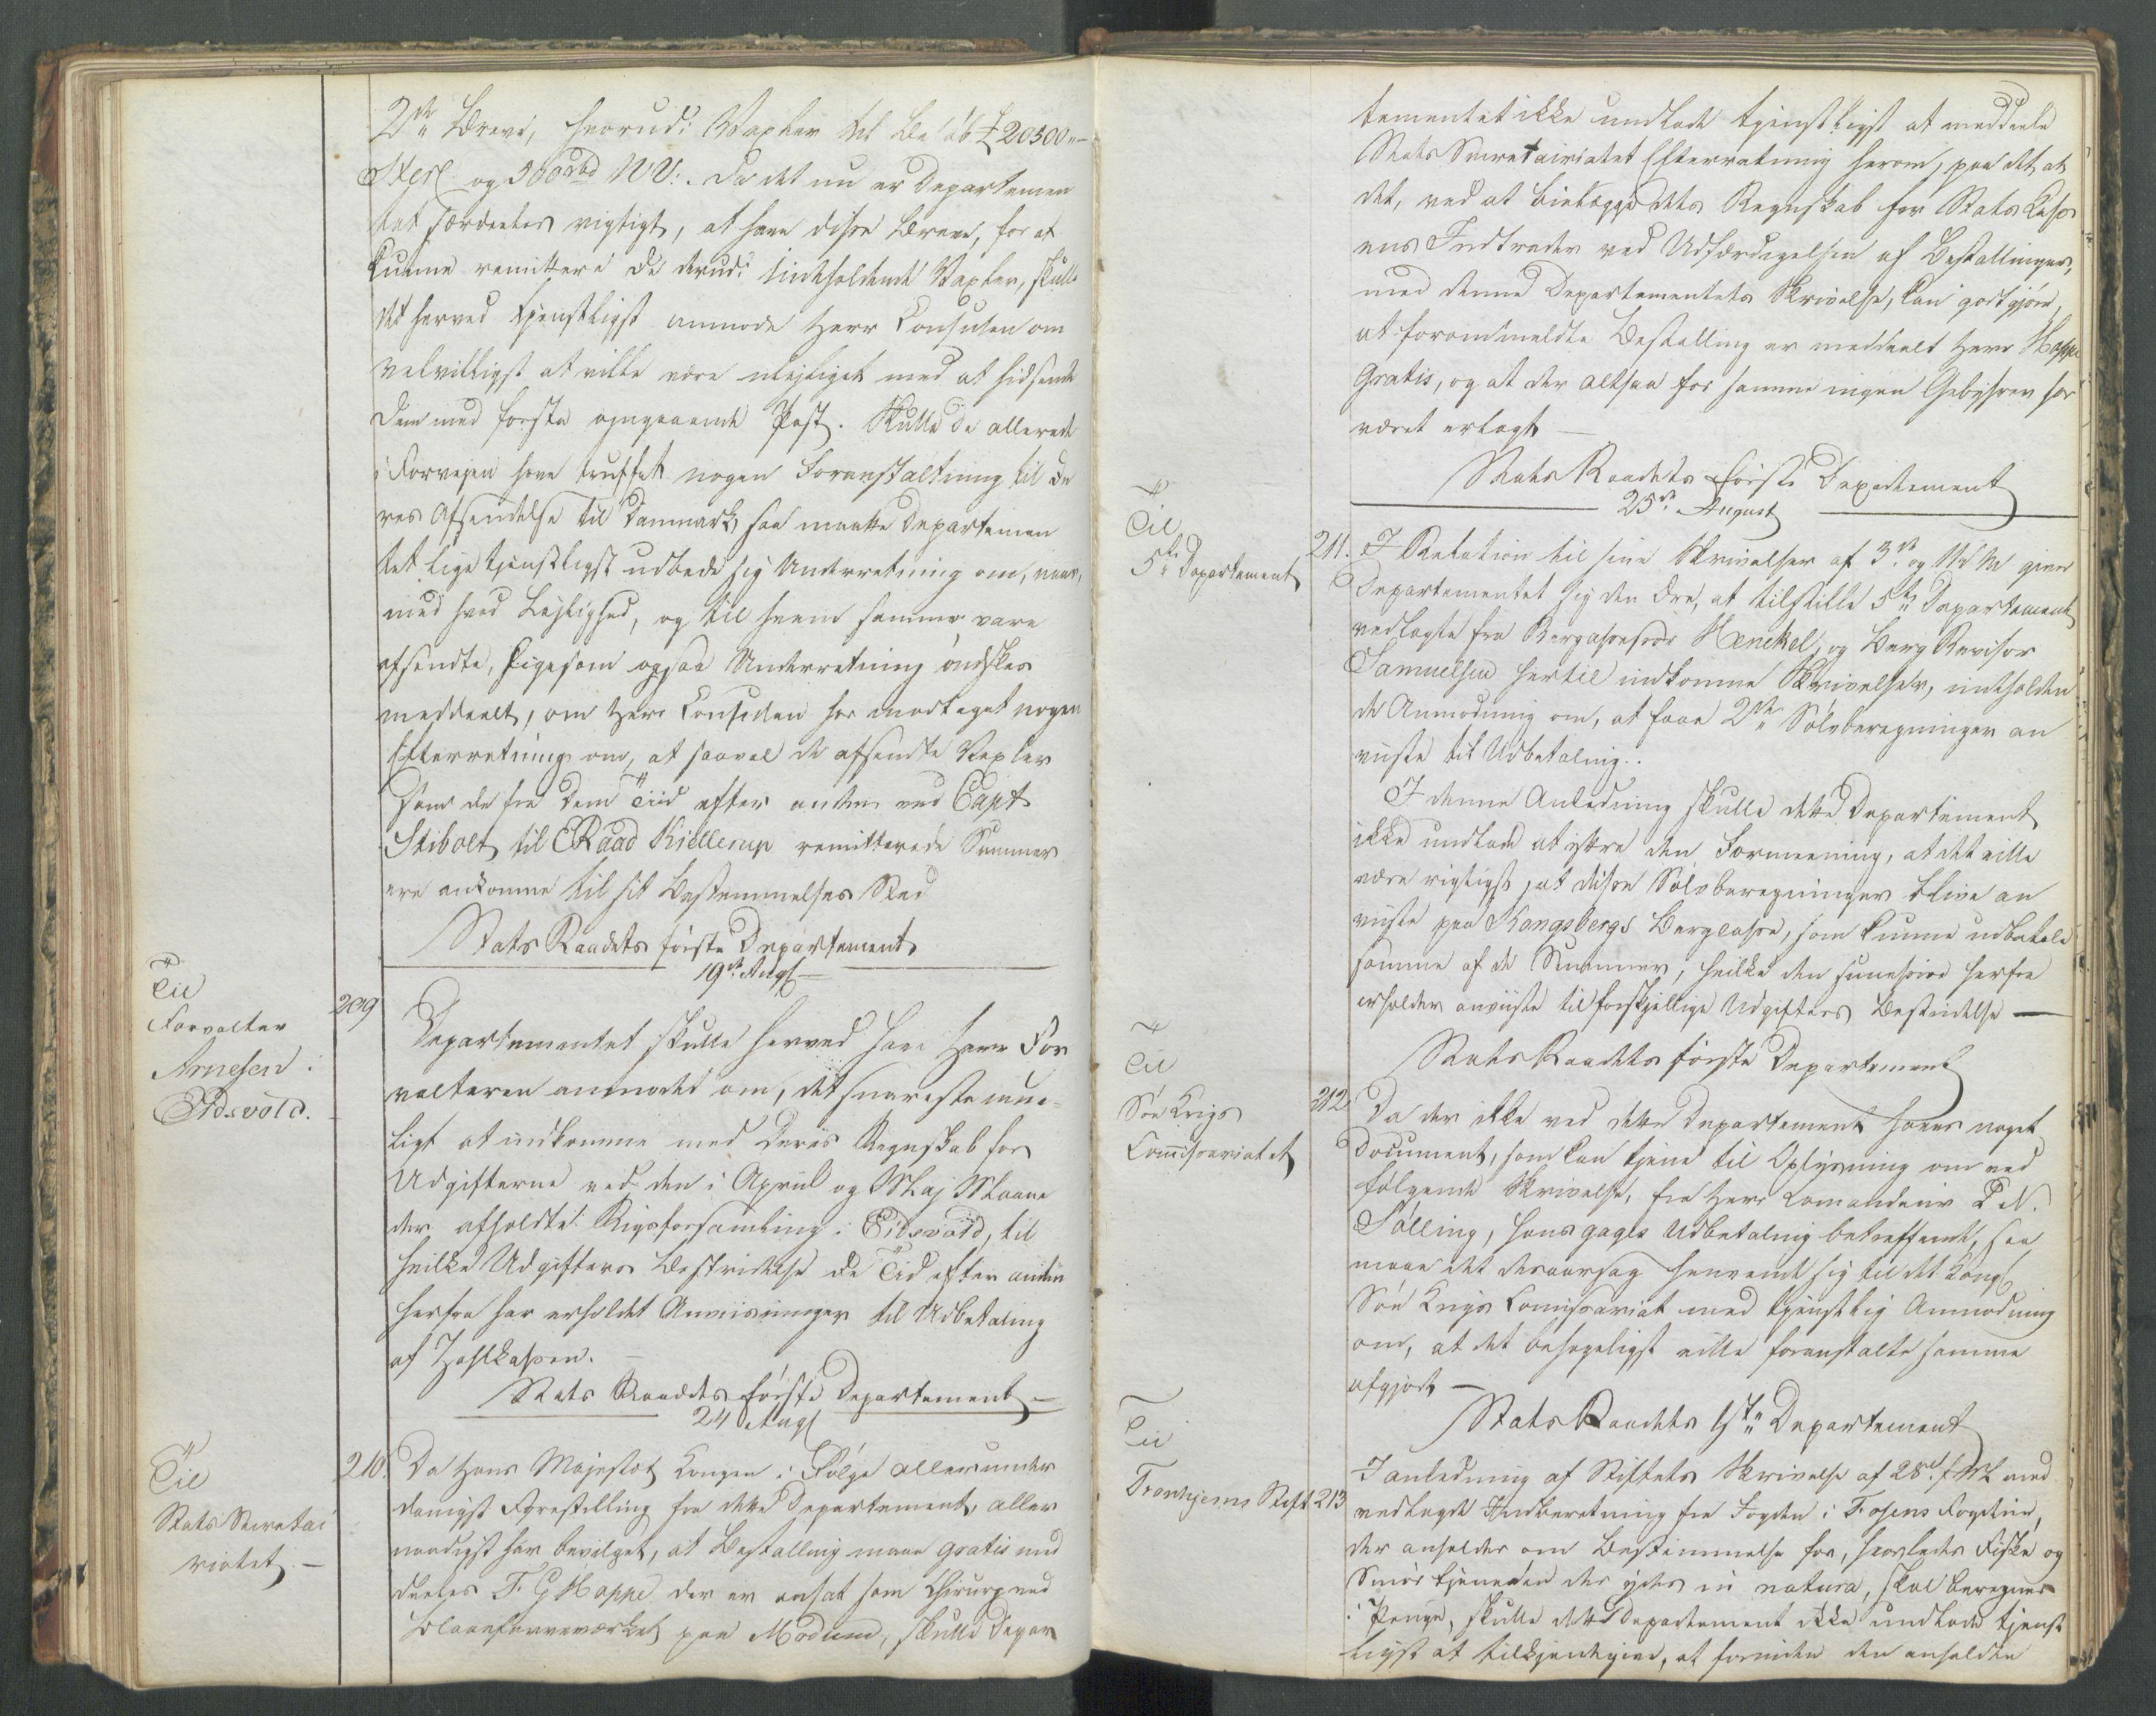 2de Breve, hvorudi Vexler til Beløb £ 20500„-
Sterl og 300 rbd NV: Da det nu er Departemen
tet særdeeles vigtigt, at have disse Breve, for at
kunne remittere de derudi indeholdende Vexler, skulle
det herved tjenstligst anmode Herr Consulen om
velvilligst at ville være behjelpelig med at hidsende
dem med første omgaaende Post. Skulle De allerede
i Forvejen have truffet nogen Foranstaltning til de
res Afsendelse til Danmark, saa maatte Departemen
tet lige tjenstligst udbede sig Underretning om, naar,
med hvad Lejlighed, og til hvem samme vare
afsendte, ligesom ogsaa Underretning ønskes
meddeelt, om Herr Consulen har modtaget nogen
Efterretning om, at saavel de afsendte Vexler
som de fra Dem Tiid efter anden ved Capt
Stibolt til ERaad Kiellerup remitterede Summer
ere ankomne til sit Bestemmelses Sted
Stats Raadets første Departement
19de Augs
Til
Forvalter
Arnesen i
Eidsvold.
209
Departementet skulle herved have Herr For
valteren anmodet om, det snareste mue-
ligt at indkomme med Deres Regnskab for
Udgifterne ved den i April og Maj Maane
der afholdte Rigsforsamling i Eidsvold, til
hvilke Udgifters Bestridelse De Tid efter anden
herfra har erholdet Anviisninger til Udbetaling
af Zahlkassen.
Stats Raadets første Departement
24 Augs
Til
Stats Secretai
riatet.
210.
Da Hans Majestæt Kongen i Følge allerunder
danigst Forestilling fra dette Departement, aller
naadigst har bevilget, at Bestalling maae gratis med
deeles F. G Hoppe der er ansat som Chirurg ved
Blaafarveværket paa Modum, skulle Depar
tementet ikke undlade tjenstligst at meddeele
Stats Secretairiatet Efterretning herom, paa det at
det, ved at bielægge dets Regnskab for Stats Cass
ens Indtægter ved Udfærdigelsen af Bestallinger,
med denne Departementets Skrivelse, kan godtgjøre,
at forommeldte Bestalling er meddeelt Herr Hoppe
gratis, og at der altsaa for samme ingen Gebyhrer har
været erlagt
Stats Raadets første Departement
25de August
Til
5te Departement
211.
I Relation til sine Skrivelser af 3de og 11 d M giver
Departementet sig den Ære, at tilstille 5te Departement
vedlagte fra Bergassessor Henckel, og Berg Revisor
Samuelsen hertil indkomne Skrivelser, indeholden
de Anmodning om, at faae 2de Sølvberegninger an
viiste til Udbetaling.
I denne Anledning skulle dette Departement
ikke undlade at yttre den Formeening, at det ville
være rigtigst, at disse Sølvberegninger blive an
viiste paa Kongsbergs Bergcasse, som kunne udbetale
samme af de Summer, hvilke den herfra
erholder anviiste til forskjellige Udgifters Bestridelse
Stats Raadets første Departement
Til
Søe Krigs
Commissariatet
212
Da der ikke ved dette Departement haves noget
Document, som kan tjene til Oplysning om ved
følgende Skrivelse, fra Herr Comandeur P N.
Sölling, hans gages Udbetaling betreffende, saa
maae det desaarsag henvende sig til det Kongl
Søe Krigs Comissariat med tjenstlig Anmodning
om, at det behageligst ville foranstalte samme
afgjort
Stats Raadets 1ste Departement
Til
Tronhjems Stift 213
I anledning af Stiftets Skrivelse af 28de f M med
vedlagte Indberetning fra Fogden i Fosens Fogderie,
der anholder om Bestemmelse for, hvorledes Fiske og
Smør tjenen der ydes in natura, skal beregnes
i Penge, skulle dette Departement ikke undlade tjenst
ligst at tilkjendegive, at forinden den anholdte